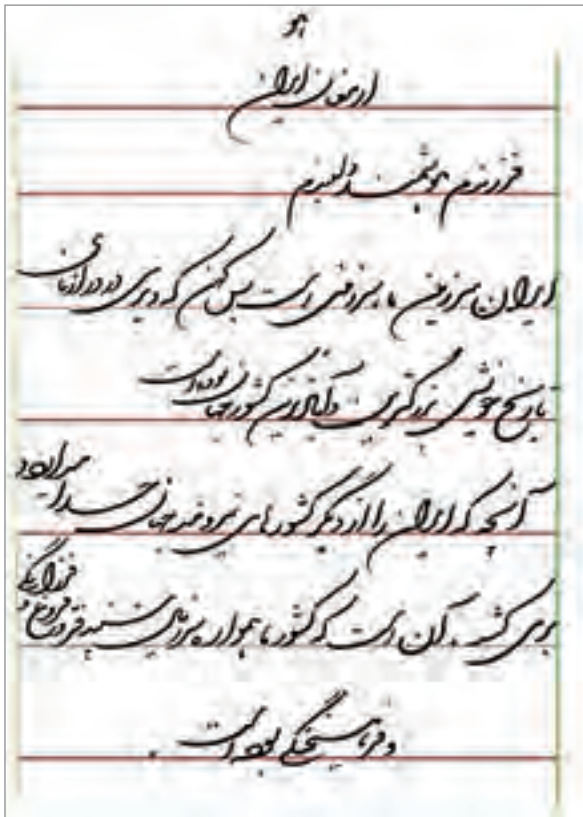 هو
ارمغان ایران
فرزندم هوشمند دلبندم
ایران سرزمین ما سرزمینی است بس کهن که دیری در درازنای
تاریخ خویش بزرگترین و کشور جهان بوده است
آنچه که ایران را از دیگر کشورهای نیرومند جهان جدا می‌دارد و
برمی کشد. آن است که کشور ما همواره سرزمین سپند فر و فروغ و فرزانگی
و فرهیختگی بوده است.